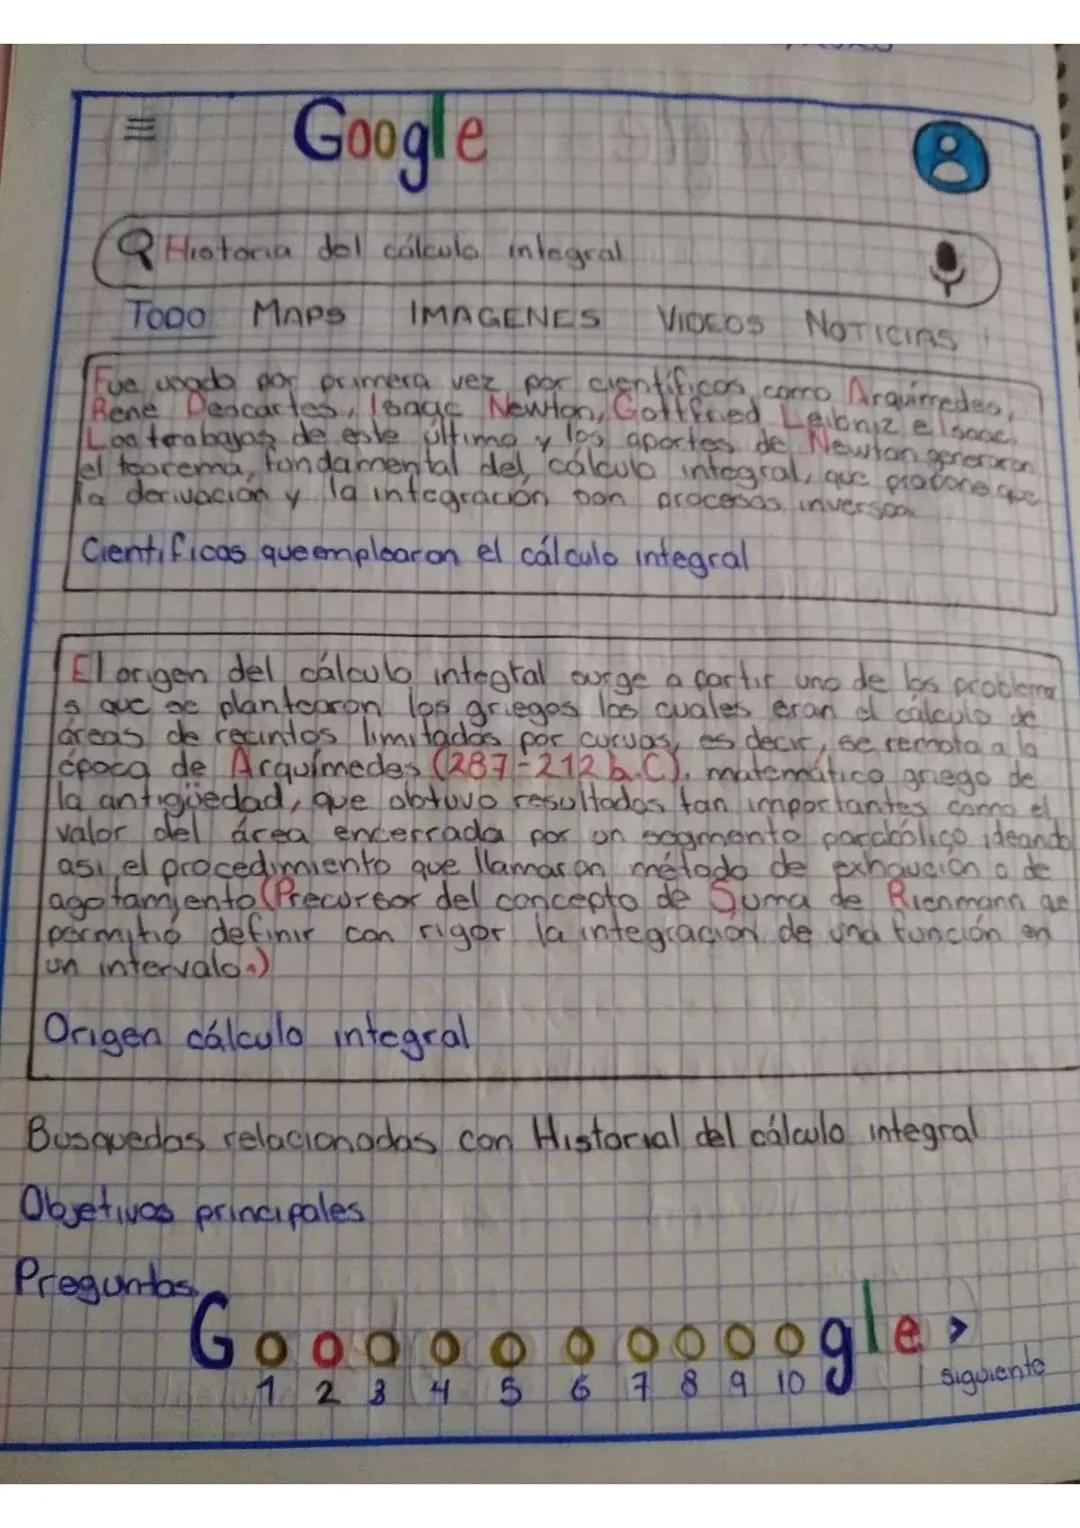 Google
Historia del cálculo integral
TODO MAPS IMAGENES VIDEOS NOTICIAS
Fue usado por primera vez por científicos como Arquímedes,
René Descartes, Isaac Newton, Gottfried Leibniz e Isaac
Los trabajos de este último y los aportes de Newton generaron
el teorema fundamental del cálculo integral, que propone que
la derivación y la integración son procesos inversos
Científicos que emplearon el cálculo integral
El origen del cálculo integral surge a partir uno de los problema
s que se plantearon los griegos los cuales eran el cálculo de
áreas de recintos limitados por curvas, es decir, se remota a la
época de Arquímedes (287-212 b.C), matemático griego de
la antigüedad, que obtuvo resultados tan importantes como el
valor del área encerrada por un segmento parabólico ideando
asi el procedimiento que llamaron método de exhaución o de
agotamiento (Precursor del concepto de Suma de Rienmann qe
permitio definir con rigor la integración de una función en
un intervalo.)
Origen cálculo integral
Busquedas relacionadas con Historial del cálculo integral
Objetivos principales
Preguntas
Goooooooooogle >
1 2 3 4 5 6 7 8 9 10 siguiente